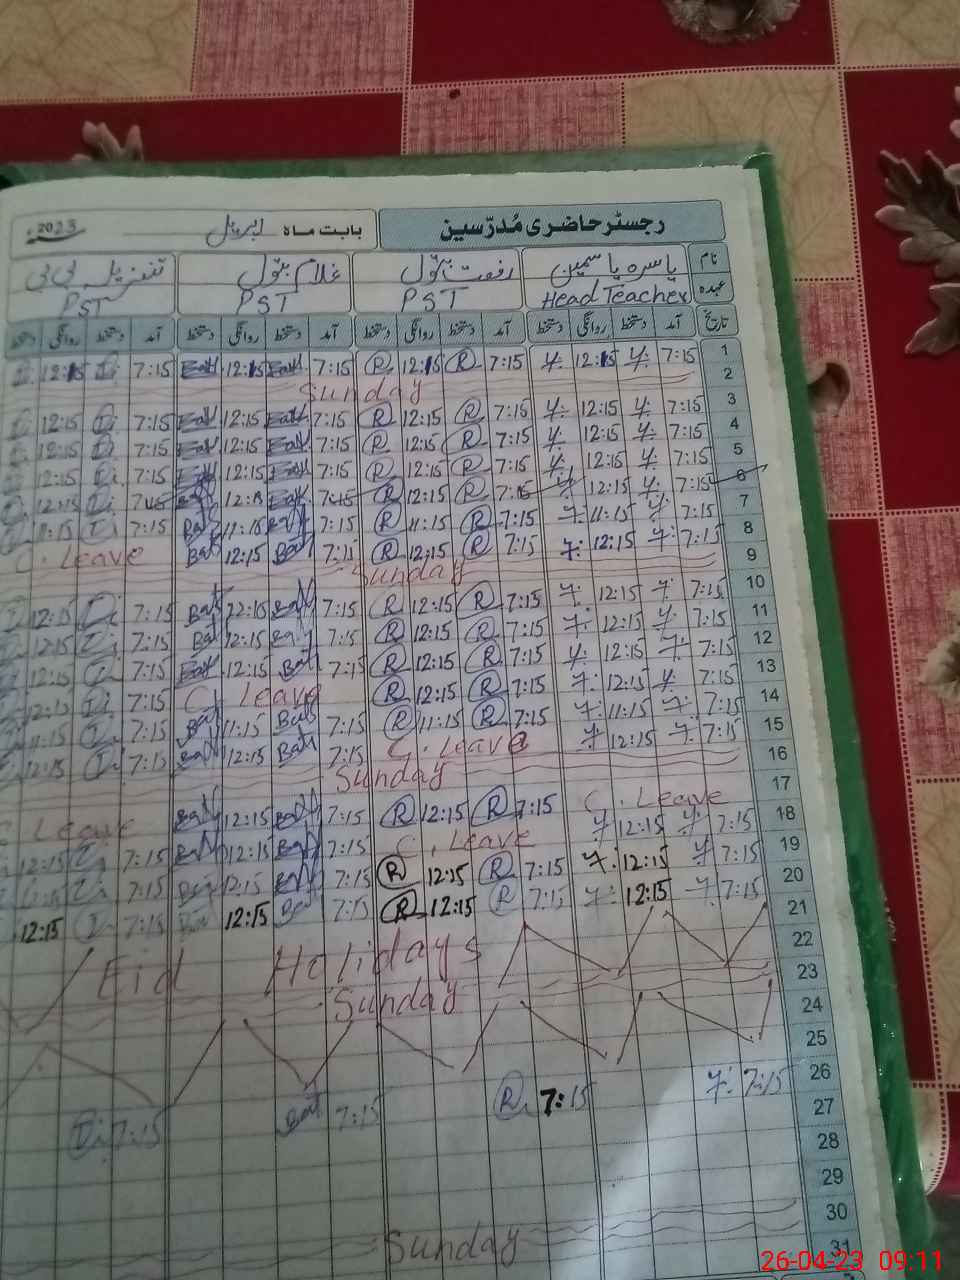 رجسٹر حاضری مُدرّسین
بابت ماہ اپریل 2023ء
نام یاسرہ یاسمین رفعت بتول غلام بتول تنزیلہ بی بی
عہدہ Head Teacher PST PST PST
تاریخ آمد دستخط روانگی دستخط آمد دستخط روانگی دستخط آمد دستخط روانگی دستخط آمد دستخط روانگی دستخط
1 7:15 12:15 7:15 R 12:15 R 7:15 12:15 7:15 12:15
2 Sunday
3 7:15 12:15 7:15 R 12:15 R 7:15 12:15 7:15 12:15
4 7:15 12:15 7:15 R 12:15 R 7:15 12:15 7:15 12:15
5 7:15 12:15 7:15 R 12:15 R 7:15 12:15 7:15 12:15
6 7:15 12:15 7:15 R 12:15 R 12:15 12:15
7 7:15 11:15 7:15 R 11:15 R 7:15 11:15 7:15 11:15
8 7:15 12:15 7:15 R 12:15 R 7:15 Bat 12:15 Bat C Leave
9 Sunday
10 7:15 12:15 7:15 R 12:15 R 7:15 7:15 12:15
11 7:15 12:15 7:15 R 12:15 R 7:15 12:15 7:15 12:15
12 7:15 12:15 7:15 R 12:15 R 7:15 12:15 7:15 12:15
13 7:15 12:15 7:15 R 12:15 R C Leave 7:15 12:15
14 7:15 11:15 7:15 R 11:15 R 7:15 Bat 11:15 Bat 7:15 11:15
15 7:15 12:15 C. Leave 7:15 Bat 12:15 7:15 12:15
16 Sunday
17 C. Leave 7:15 R 12:15 R 7:15 12:15 C Leave
18 7:15 12:15 C. Leave 7:15 12:15 7:15 12:15
19 7:15 12:15 7:15 R 12:15 R 7:15 12:15 7:15
20 7:15 12:15 7:15 R 12:15 R 7:15 Bat 12:15 7:15 12:15
21
22 Eid Holidays
23 Sunday
24
25
26 7:15 7:15 R 7:15 Bat 7:15
27
28
29
30 Sunday
31
26-04-23 09:11